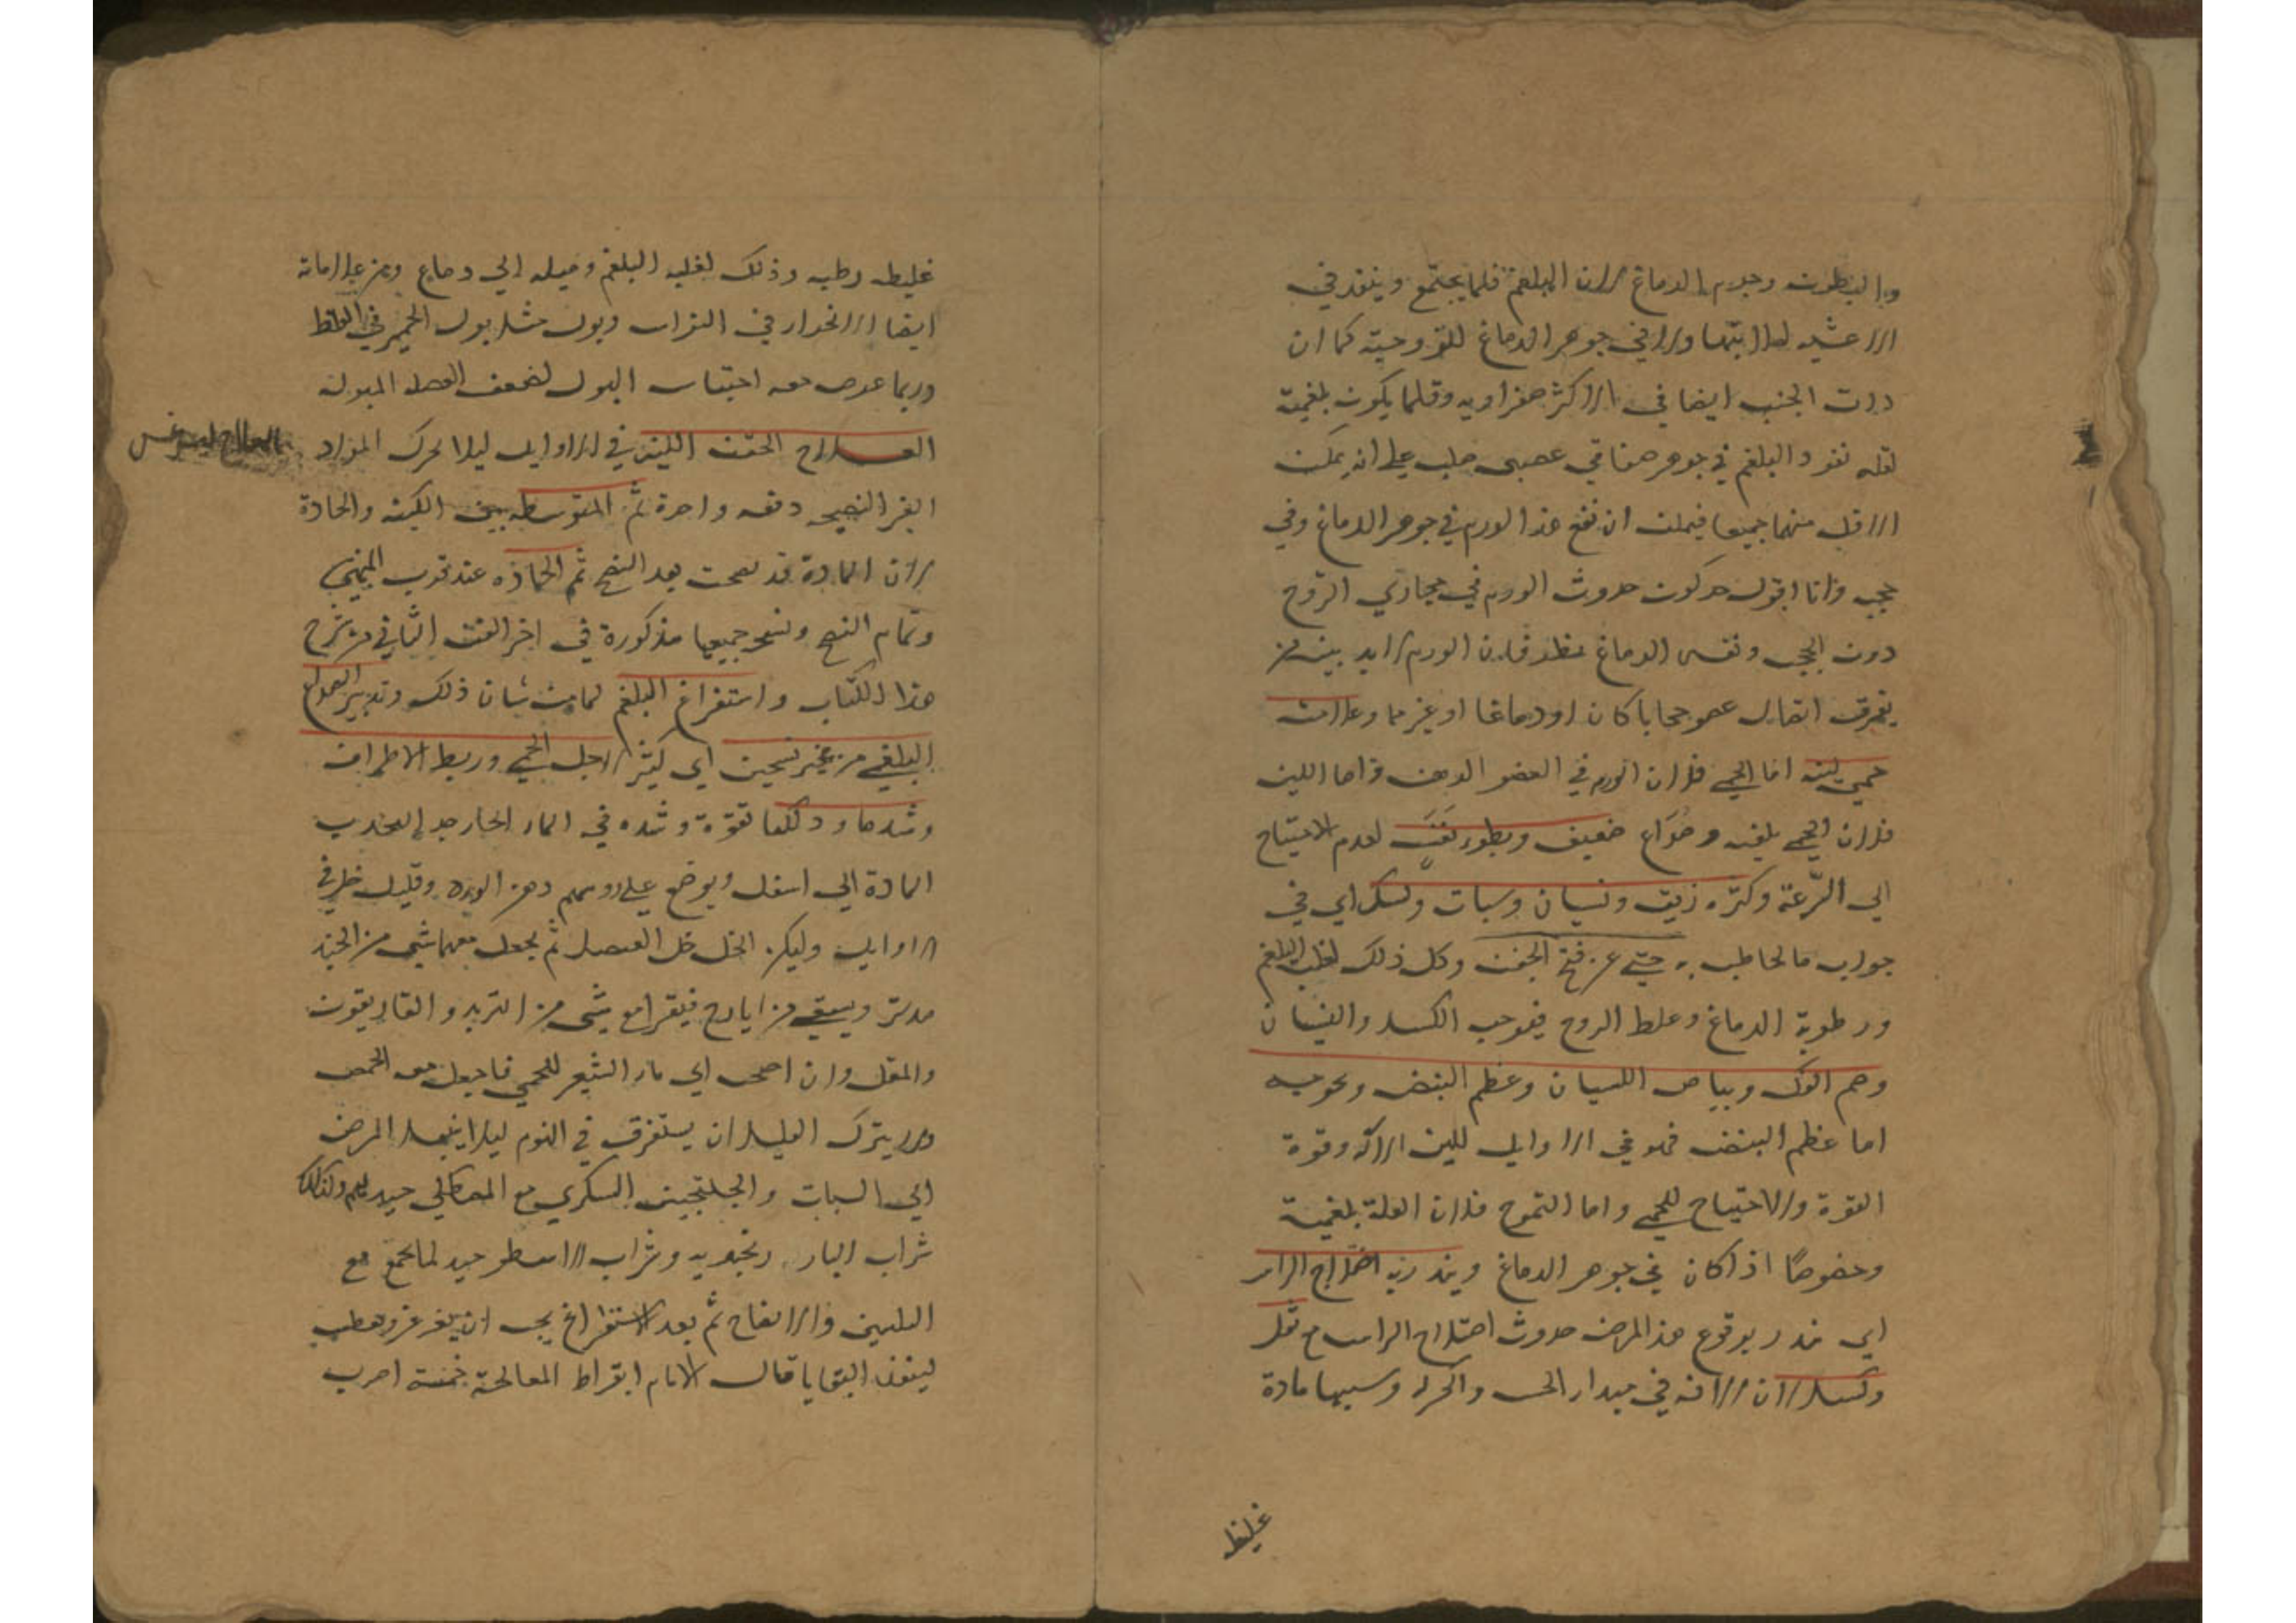 والبطون وجرم الدماغ لان البلغم قلما يجتمع وينفذ في
الاغشيه لصلابتها ولا في جوهر الدماغ للزوجيته كما ان
ذات الجنب ايضا في الاكثر صفراويه وقلما يكون بلغمية
لقله نفوذ البلغم في جوهر صفاقي عصبي صلب علي انه يمكن
الاقل منهما جميعا فيمكن ان يقع هذا الورم في جوهر الدماغ وفي
حجبه وانا اقول حدوث الورم في مجاري الروح
دون الحجب ونفس الدماغ نظر فان الورم لا بد بينه من
تفرق اتصال عضو حجابا كان او دماغا او غيرهما وعلامته
حمي لينه اما الحمي فلان الورم في العضو واما اللين
فلان الحمي بلغميه وصداع ضعيف وبطوء نفس لعدم الاحتياج
الي السرعة وكثره ريق ونسيان وسبات وكسل اي في
جواب ما يخاطب به حتي عن فتح الجفن وكل ذلك لغلبه البلغم
ورطوبة الدماغ وغلظ الروح فيوجب الكسل والنسيان
وبياض اللسان وعظم النبض وتموجه
اما عظم النبض فهو في الاوايل للين الاله وقوة
القوة والاحتياج للحمي واما التموج فلان العلة بلغمية
وخصوصا اذا كان في جوهر الدماغ وينذر به اختلاج الراس
اي ينذر بوقوع هذا المرض حدوث اختلاج الراس مع ثقل
وكسل لان الافه في مبداء الحس والحركه وسببها مادة
غليظه
غليظه رطبه وذلك لغلبه البلغم وميله الي دماغ ومن علاماته
ايضا الانحدار في وبول مثل بول الحمير في الغلظ
وربما عرض معه احتباس البول لضعف العضله المبوله
العلاج الحقن اللينه في الاوايل ليلا يحرك المواد
العلاج ليثرغس
الغير النضيجه دفعه واحدة ثم المتوسطه بين اللينه والحادة
لان المادة قد نضجت بعد النضج ثم الحاده عند قرب المنتهي
وتمام النضج ونسخ جميعها مذكورة في اخر الفن الثاني من شرح
هذا الكتاب واستفراغ البلغم لما من شان ذلك وتدبير الصداع
البلغمي من غير تسخين اي كثير لاجل الحمي وربط الاطراف
وشدها ودلكها بقوة وشده في الماء الحار جدا لتجذب
المادة الي اسفل ويوضع علي روسهم دهن الورد وقليل خل في
الاوايل وليكن الخل خل العنصل ثم يجعل معهما شي من الجند
بدستر ويسقي من ايارج فيقرا مع شي من التربد والغاريقون
والمقل وان احتجت الي ماء الشعير للحمي فاجعل معه الحمص
ولا يترك العليل ان يستغرق في النوم ليلا ينتقل المرض
الي السبات والجلنجبين السكري مع المصطكي جيد لهم وكذلك
شراب البادرنجبويه وشراب الاسطوخودوس لما يجمع مع
التليين والانضاج ثم بعد الاستفراغ يجب ان يتغرغر ويعطس
لينفذ البقايا قال الامام ابقراط المعالجة خمسة اضرب